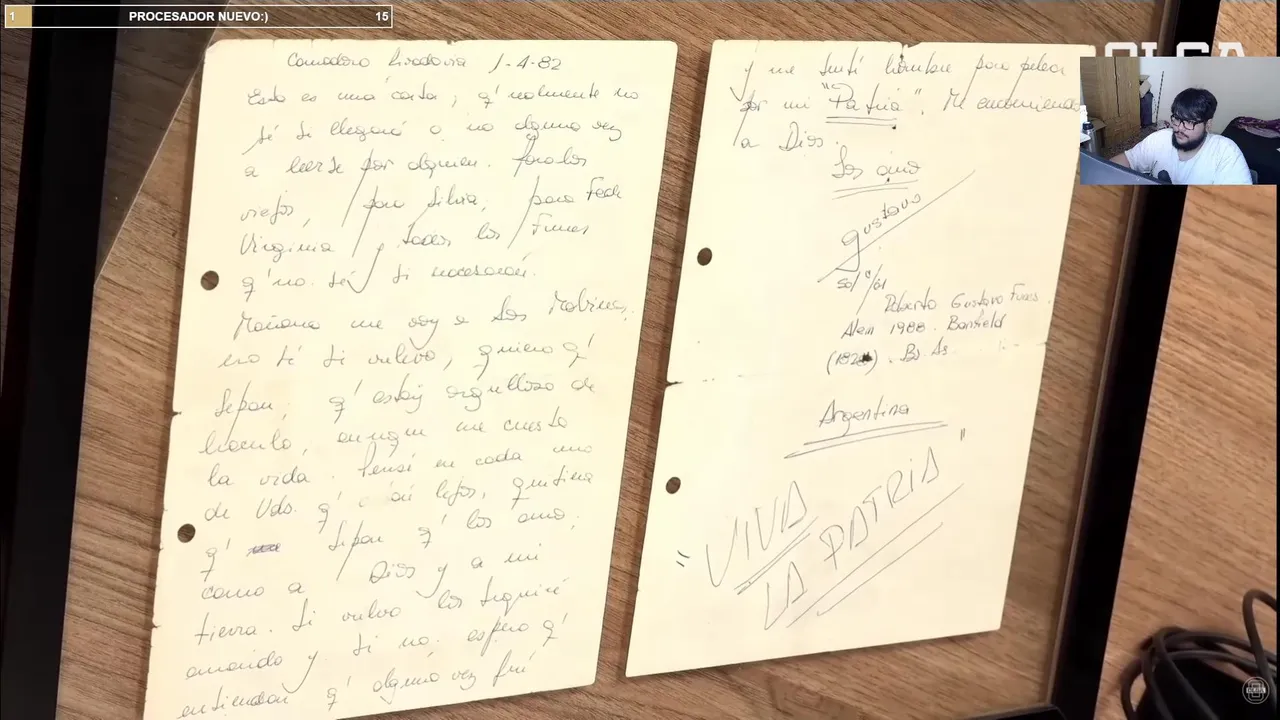 1
PROCESADOR NUEVO:)
15
OLGA
Comodoro Rivadavia 1-4-82
Esto es una carta, q' realmente no
sé si llegará o no alguna vez
a leerse por alguien. Para los
viejos, para Silvia, para Fede
Virginia y todos los Funes
q' no sé si nacerán.
Mañana me voy a las Malvinas,
no sé si vuelvo, quiero q'
sepan, q' estoy orgulloso de
hacerlo, aunque me cueste
la vida. Pensé en cada uno
de Uds. q' están lejos, quisiera
q' sepan q' los amo,
como a Dios y a mi
tierra. Si vuelvo los seguiré
amando y si no, espero q'
entiendan q' alguna vez fui
y me sentí hombre para pelear
por mi "Patria". Me encomiendo
a Dios.
Los amo
Gustavo
Sol c/61
Roberto Gustavo Funes.
Alem 1988. Banfield
Bs. As.
Argentina
"VIVA
LA PATRIA"